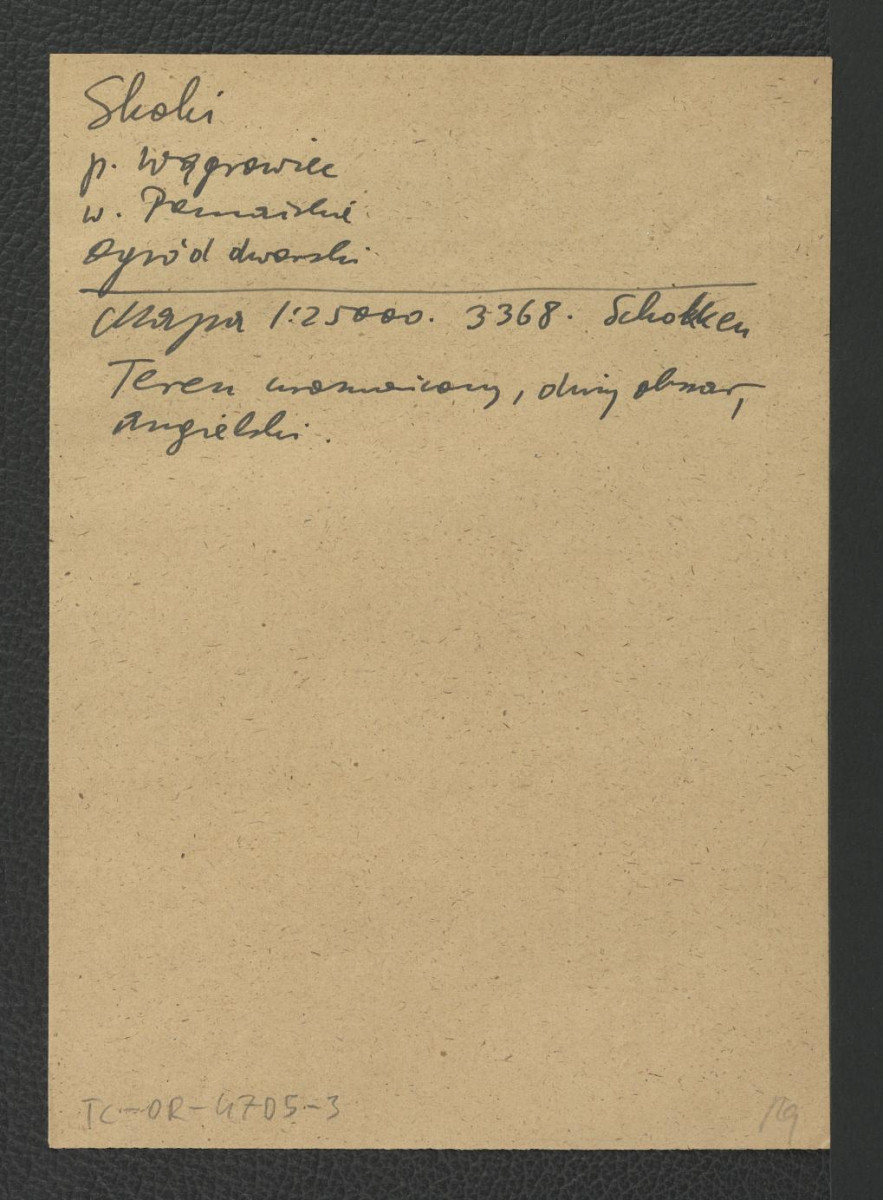 Skoki
p. Wągrowiec
w. Poznańskie
Ogród dworski
Mapa 1:25000. 3368. Schokken
Teren urozmaicony, duży obszar,
angielski.
TC-OR-4705-3